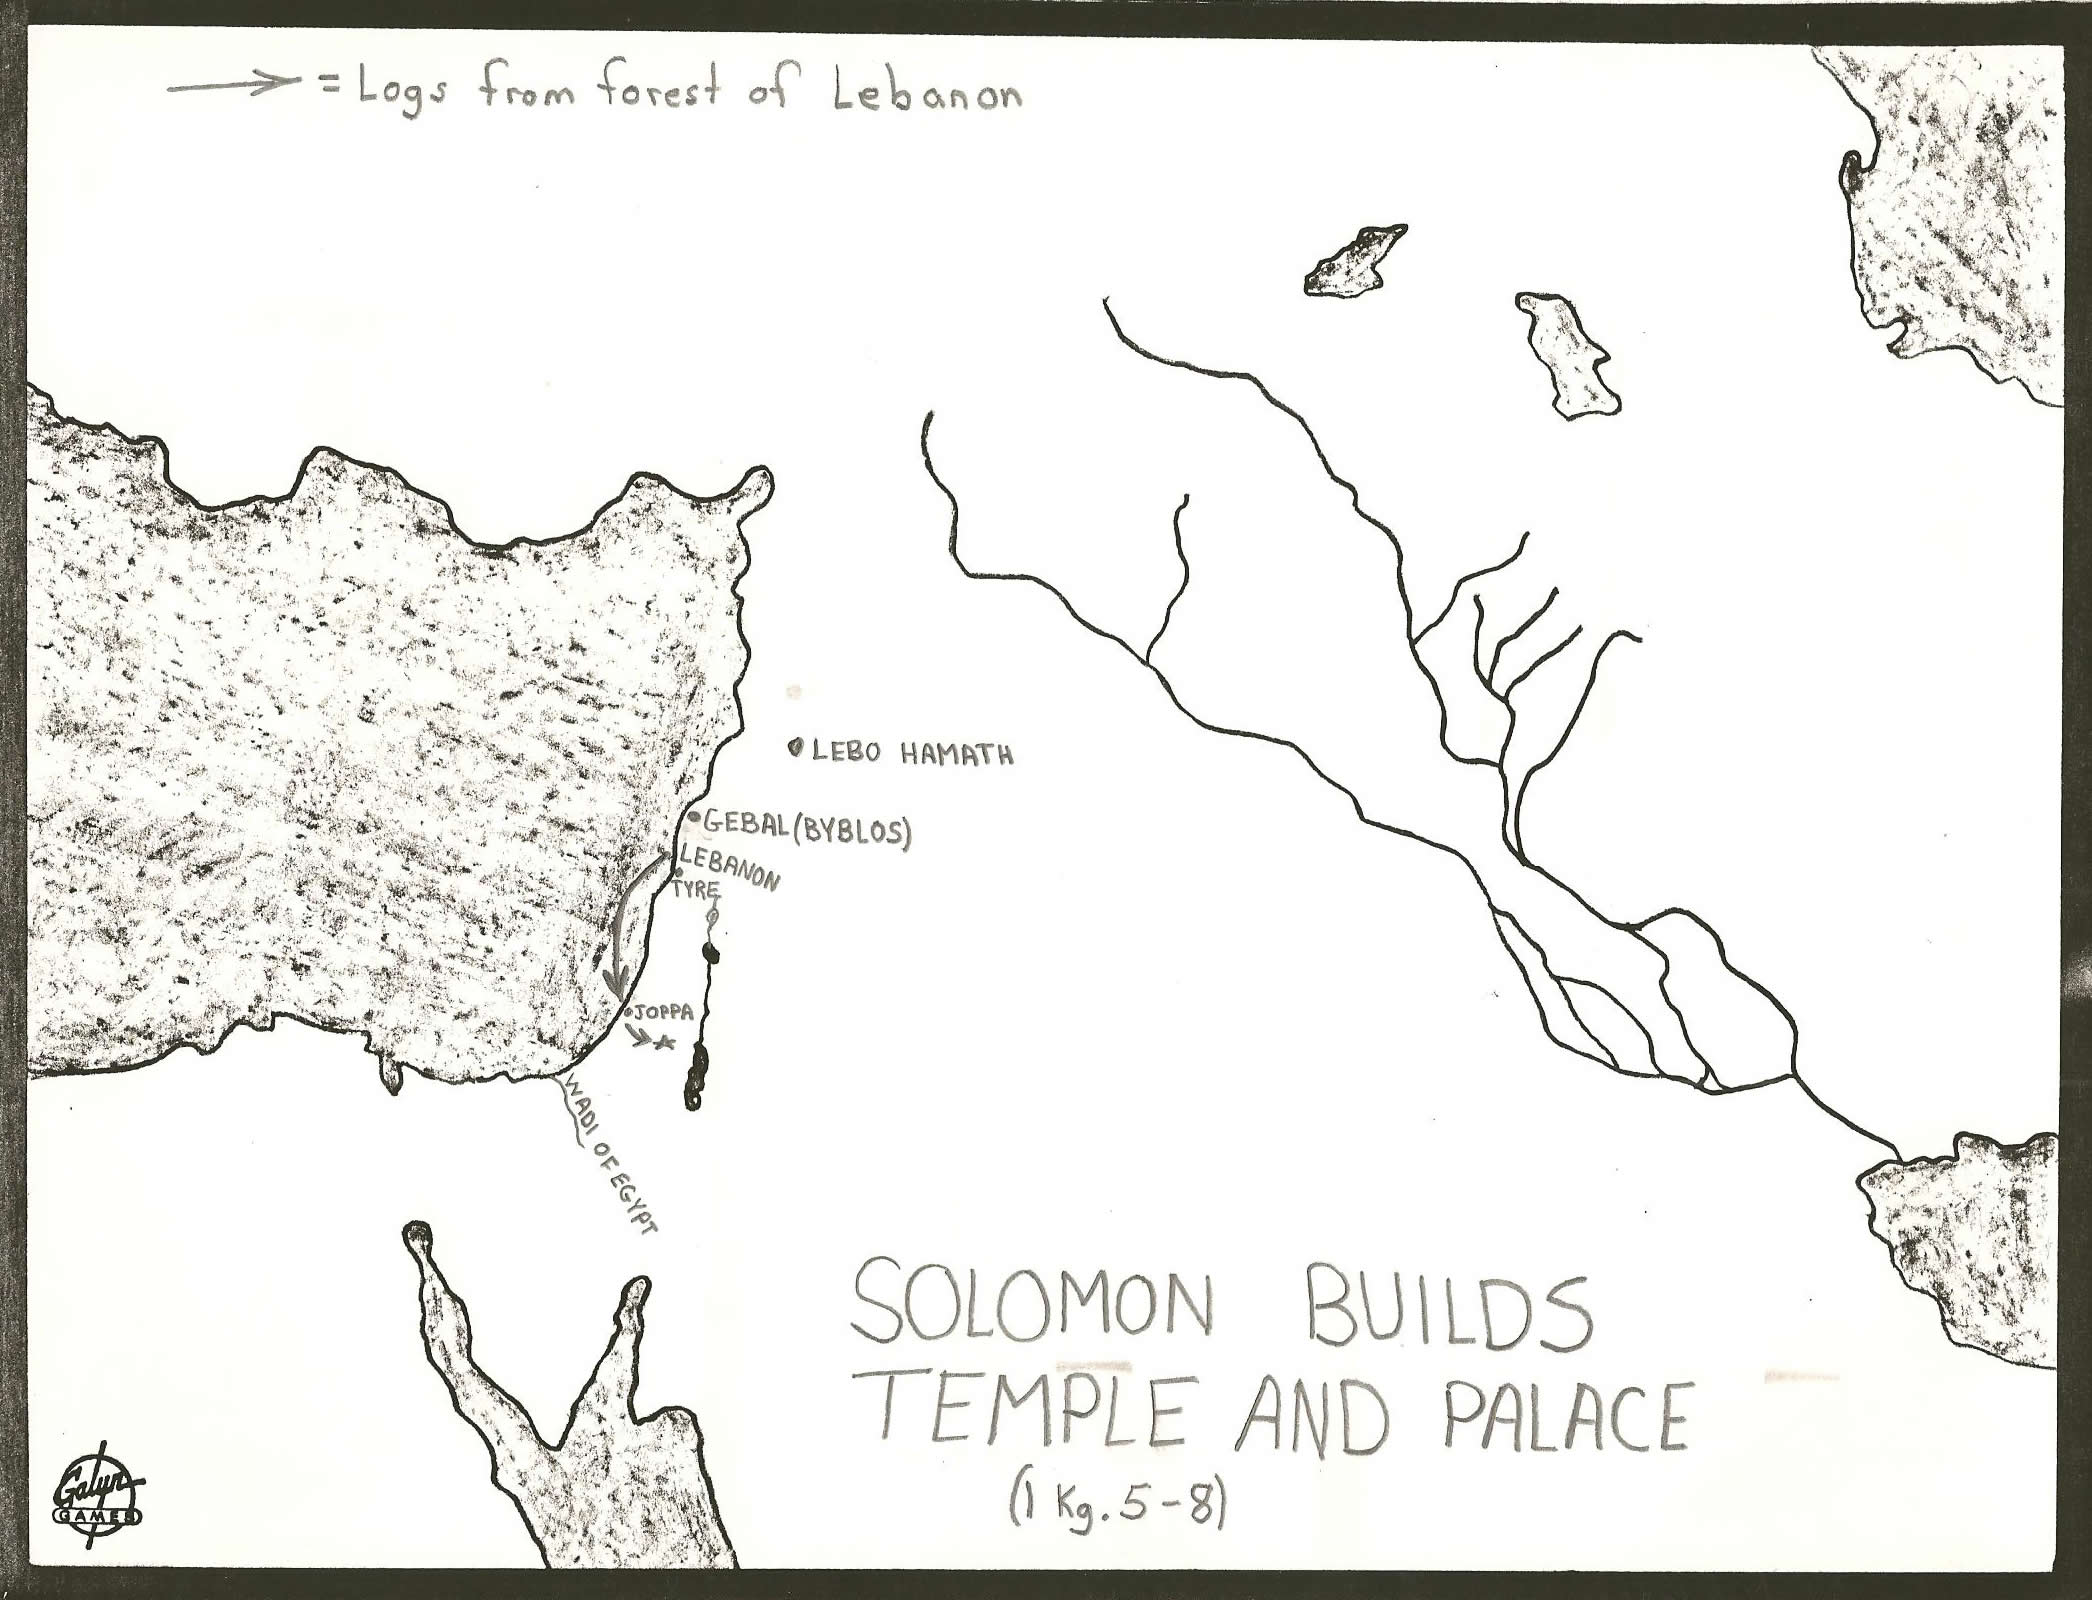 = Logs from forest of Lebanon
LEBO HAMATH
GEBAL (BYBLOS)
LEBANON
TYRE
JOPPA
WADI OF EGYPT
SOLOMON BUILDS
TEMPLE AND PALACE
(1 Kg. 5-8)
Galyn
GAMES